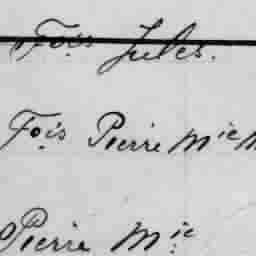 Fois Jules.
Fois Pierre Mie
Pierre Mie